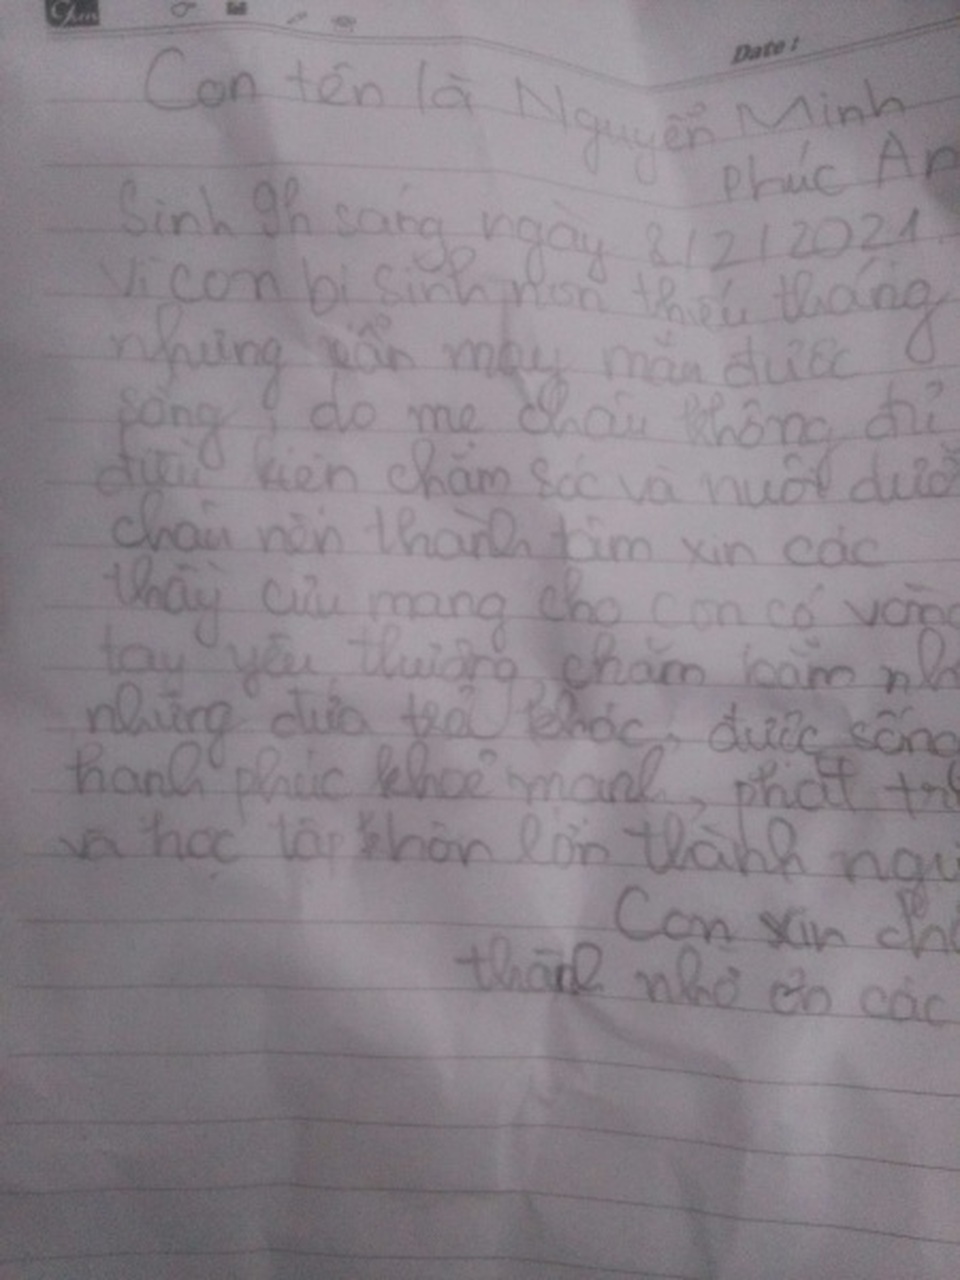 Date:
Con tên là Nguyễn Minh
Phúc An
Sinh 9h sáng ngày 8/2/2021.
Vì con bị sinh non thiếu tháng
nhưng vẫn may mắn được
sống, do mẹ cháu không đủ
điều kiện chăm sóc và nuôi dưỡ
cháu nên thành tâm xin các
thầy cưu mang cho con có vòng
tay yêu thương chăm bẵm nh
những đứa trẻ khác, được sống
hạnh phúc khoẻ mạnh, phát tri
và học tập khôn lớn thành ngư
Con xin ch
thành nhớ ơn các